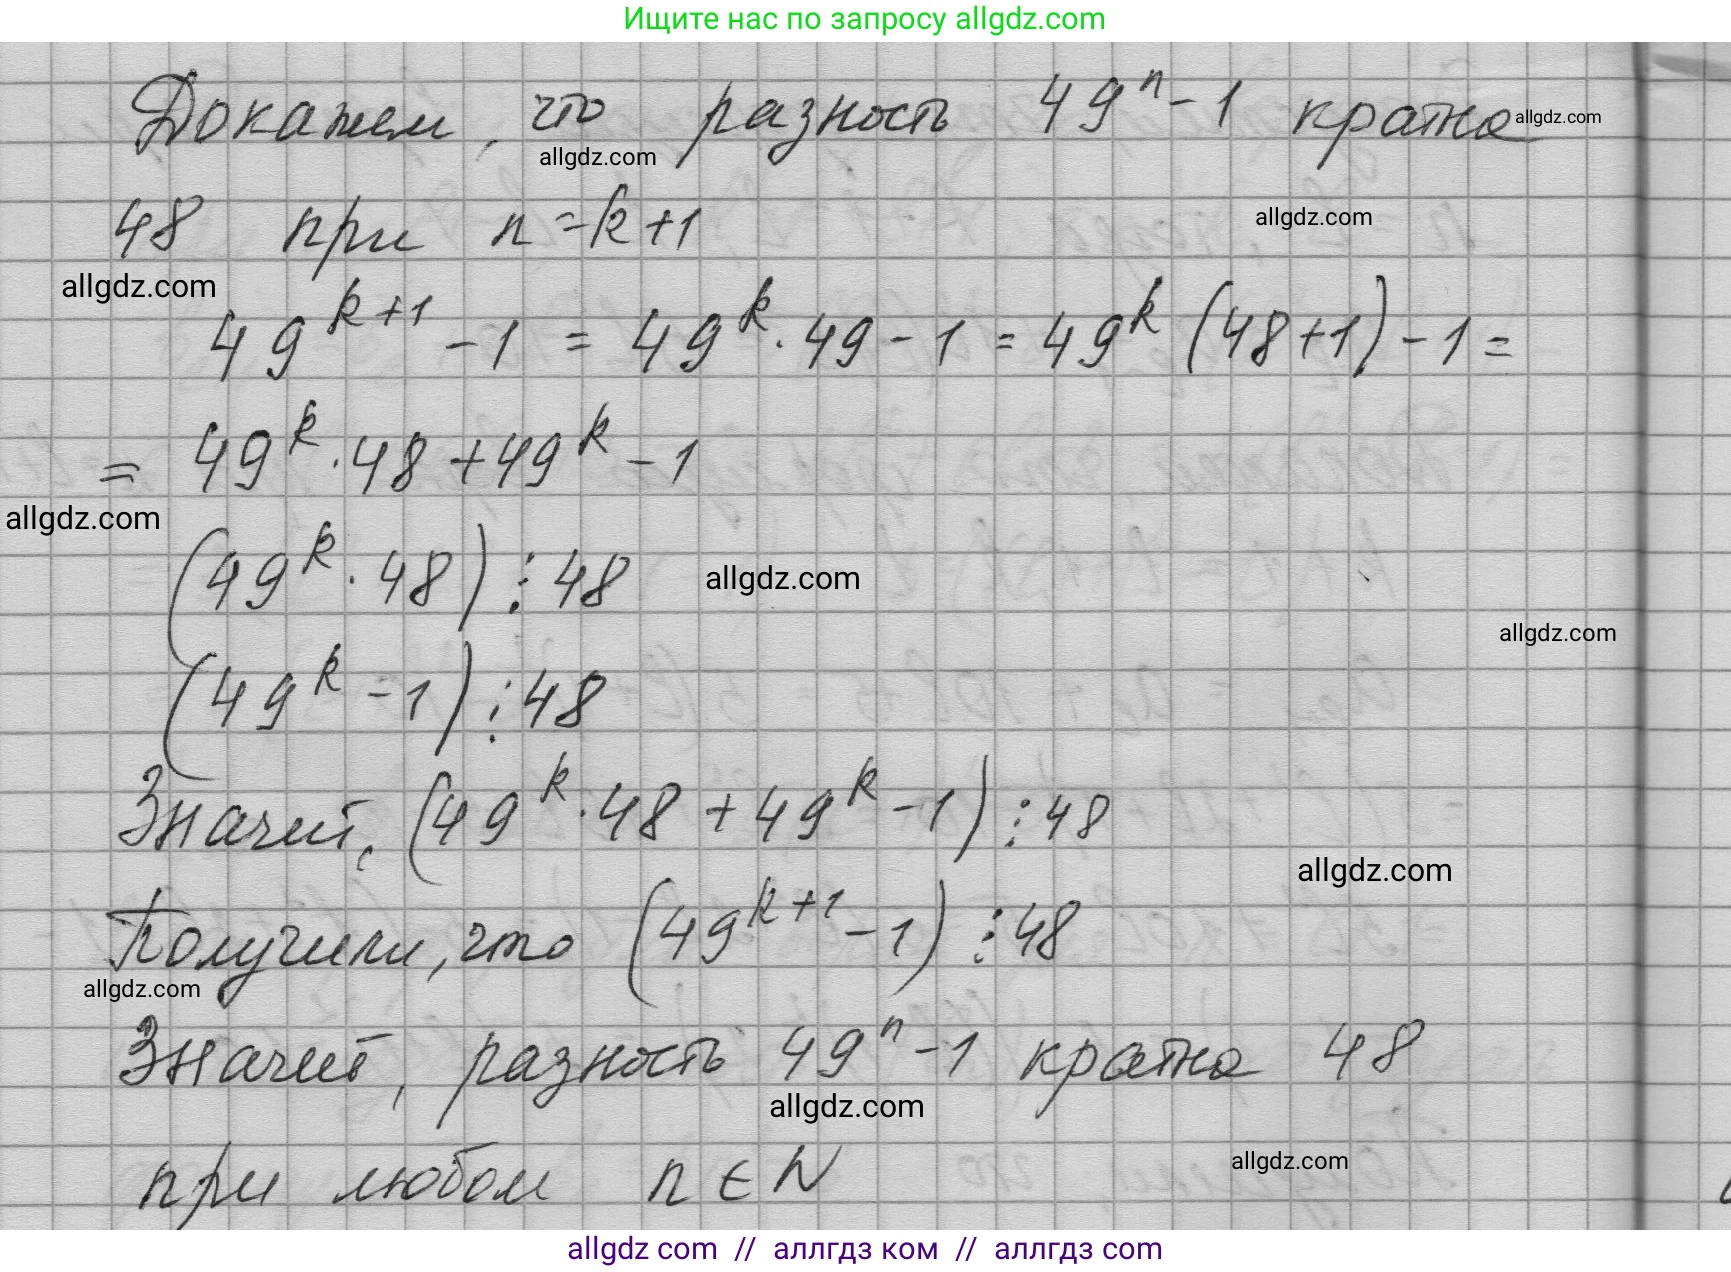 Ищите нас по запросу allgdz.com
Докажем, что разность 49ⁿ - 1 кратна allgdz.com
allgdz.com
48 при n = k+1 allgdz.com
allgdz.com
49^{k+1} - 1 = 49^k · 49 - 1 = 49^k (48+1) - 1 =
= 49^k · 48 + 49^k - 1
allgdz.com
(49^k · 48) ⋮ 48 allgdz.com
allgdz.com
(49^k - 1) ⋮ 48
Значит, (49^k · 48 + 49^k - 1) ⋮ 48
allgdz.com
Получили, что (49^{k+1} - 1) ⋮ 48
allgdz.com
Значит, разность 49ⁿ - 1 кратна 48
allgdz.com
при любом n ∈ N allgdz.com
allgdz com // аллгдз ком // аллгдз com